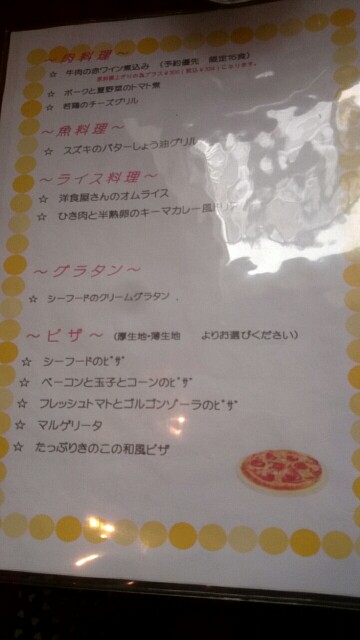 ～肉料理～
☆ 牛肉の赤ワイン煮込み (予約優先 限定15食)
☆ ポークと夏野菜のトマト煮
☆ 若鶏のチーズグリル
～魚料理～
☆ スズキのバターしょう油グリル
～ライス料理～
☆ 洋食屋さんのオムライス
☆ ひき肉と半熟卵のキーマカレー風
～グラタン～
☆ シーフードのクリームグラタン
～ピザ～ (厚生地・薄生地 よりお選びください)
☆ シーフードのピザ
☆ ベーコンと玉子とコーンのピザ
☆ フレッシュトマトとゴルゴンゾーラのピザ
☆ マルゲリータ
☆ たっぷりきのこの和風ピザ